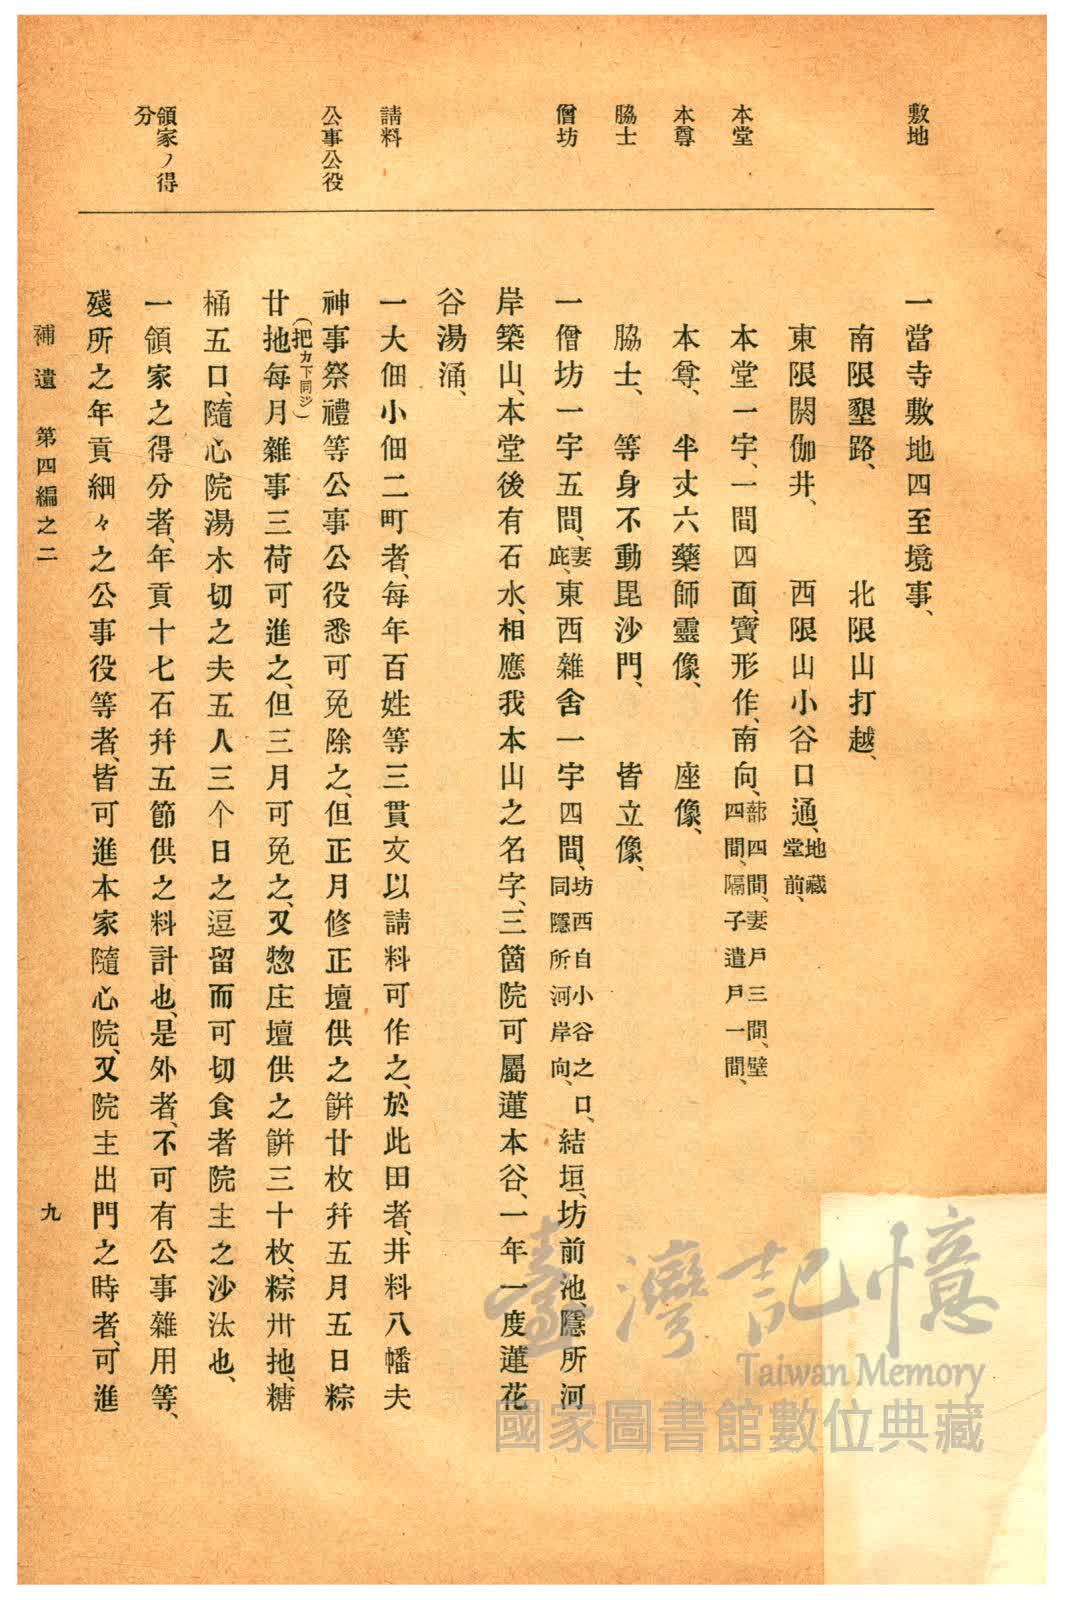 敷地
本堂
本尊
脇士
僧坊
請料
公事公役
領家ノ得
分
一當寺敷地四至境事、
南限墾路、　北限山打越、
東限閼伽井、　西限山小谷口通、地藏
堂前、
本堂一宇、一間四面、寶形作、南向、蔀四間、妻戸三間、壁
四間、隔子遣戸一間、
本尊、半丈六藥師靈像、　座像、
脇士、等身不動毘沙門、　皆立像、
一僧坊一宇五間、妻
庇、東西雜舍一宇四間、坊西自小谷之口、
同隱所河岸向、結垣、坊前池、隱所河
岸築山、本堂後有石水、相應我本山之名字、三箇院可屬蓮本谷、一年一度蓮花
谷湯涌、
一大佃小佃二町者、每年百姓等三貫文以請料可作之、於此田者、井料八幡夫
神事祭禮等公事公役悉可免除之、但正月修正壇供之餠廿枚幷五月五日粽
（把カ下同ジ）
廿地每月雜事三荷可進之、但三月可免之、又惣庄壇供之餠三十枚、粽卅地、糖
桶五口、隨心院湯木切之夫五人三个日之逗留而可切食者院主之沙汰也、
一領家之得分者、年貢十七石幷五節供之料計也、是外者、不可有公事雜用等、
殘所之年貢細々之公事役等者、皆可進本家隨心院、又院主出門之時者、可進
補遺　第四編之二
九
臺灣記憶
Taiwan Memory
國家圖書館數位典藏